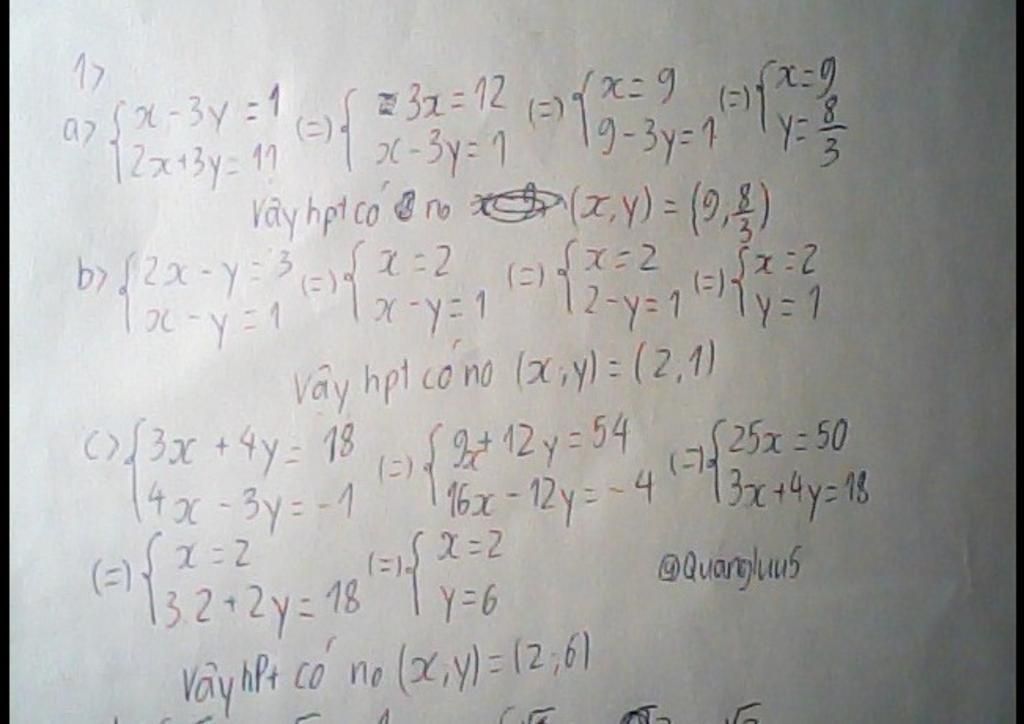 1>
a> { x - 3y = 1 ; 2x + 3y = 11 (=) { 3x = 12 ; x - 3y = 1 (=) { x = 9 ; 9 - 3y = 1 (=) { x = 9 ; y = 8/3
Vậy hpt có no (x, y) = (9, 8/3)
b> { 2x - y = 3 ; x - y = 1 (=) { x = 2 ; x - y = 1 (=) { x = 2 ; 2 - y = 1 (=) { x = 2 ; y = 1
Vậy hpt có no (x, y) = (2, 1)
c) { 3x + 4y = 18 ; 4x - 3y = -1 (=) { 9x + 12y = 54 ; 16x - 12y = -4 (=) { 25x = 50 ; 3x + 4y = 18
(=) { x = 2 ; 3.2 + 2y = 18 (=) { x = 2 ; y = 6
@Quangluu5
Vậy hpt có no (x, y) = (2; 6)